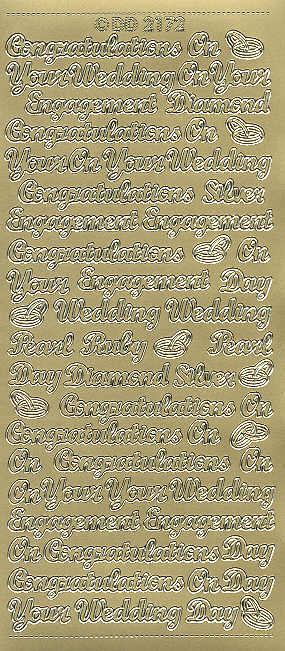 © DD 2172
Congratulations On
Your Wedding On Your
Engagement Diamond
Congratulations On
Your On Your Wedding
Congratulations Silver
Engagement Engagement
Congratulations On
Your Engagement Day
Wedding Wedding
Pearl Ruby Pearl
Day Diamond Silver
Congratulations On
Congratulations On
On Congratulations On
On Your Your Wedding
Engagement Engagement
On Congratulations Day
Congratulations On Day
Your Wedding Day